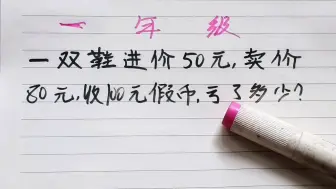 一年级
一双鞋进价50元,卖价
80元,收100元假币,亏了多少?